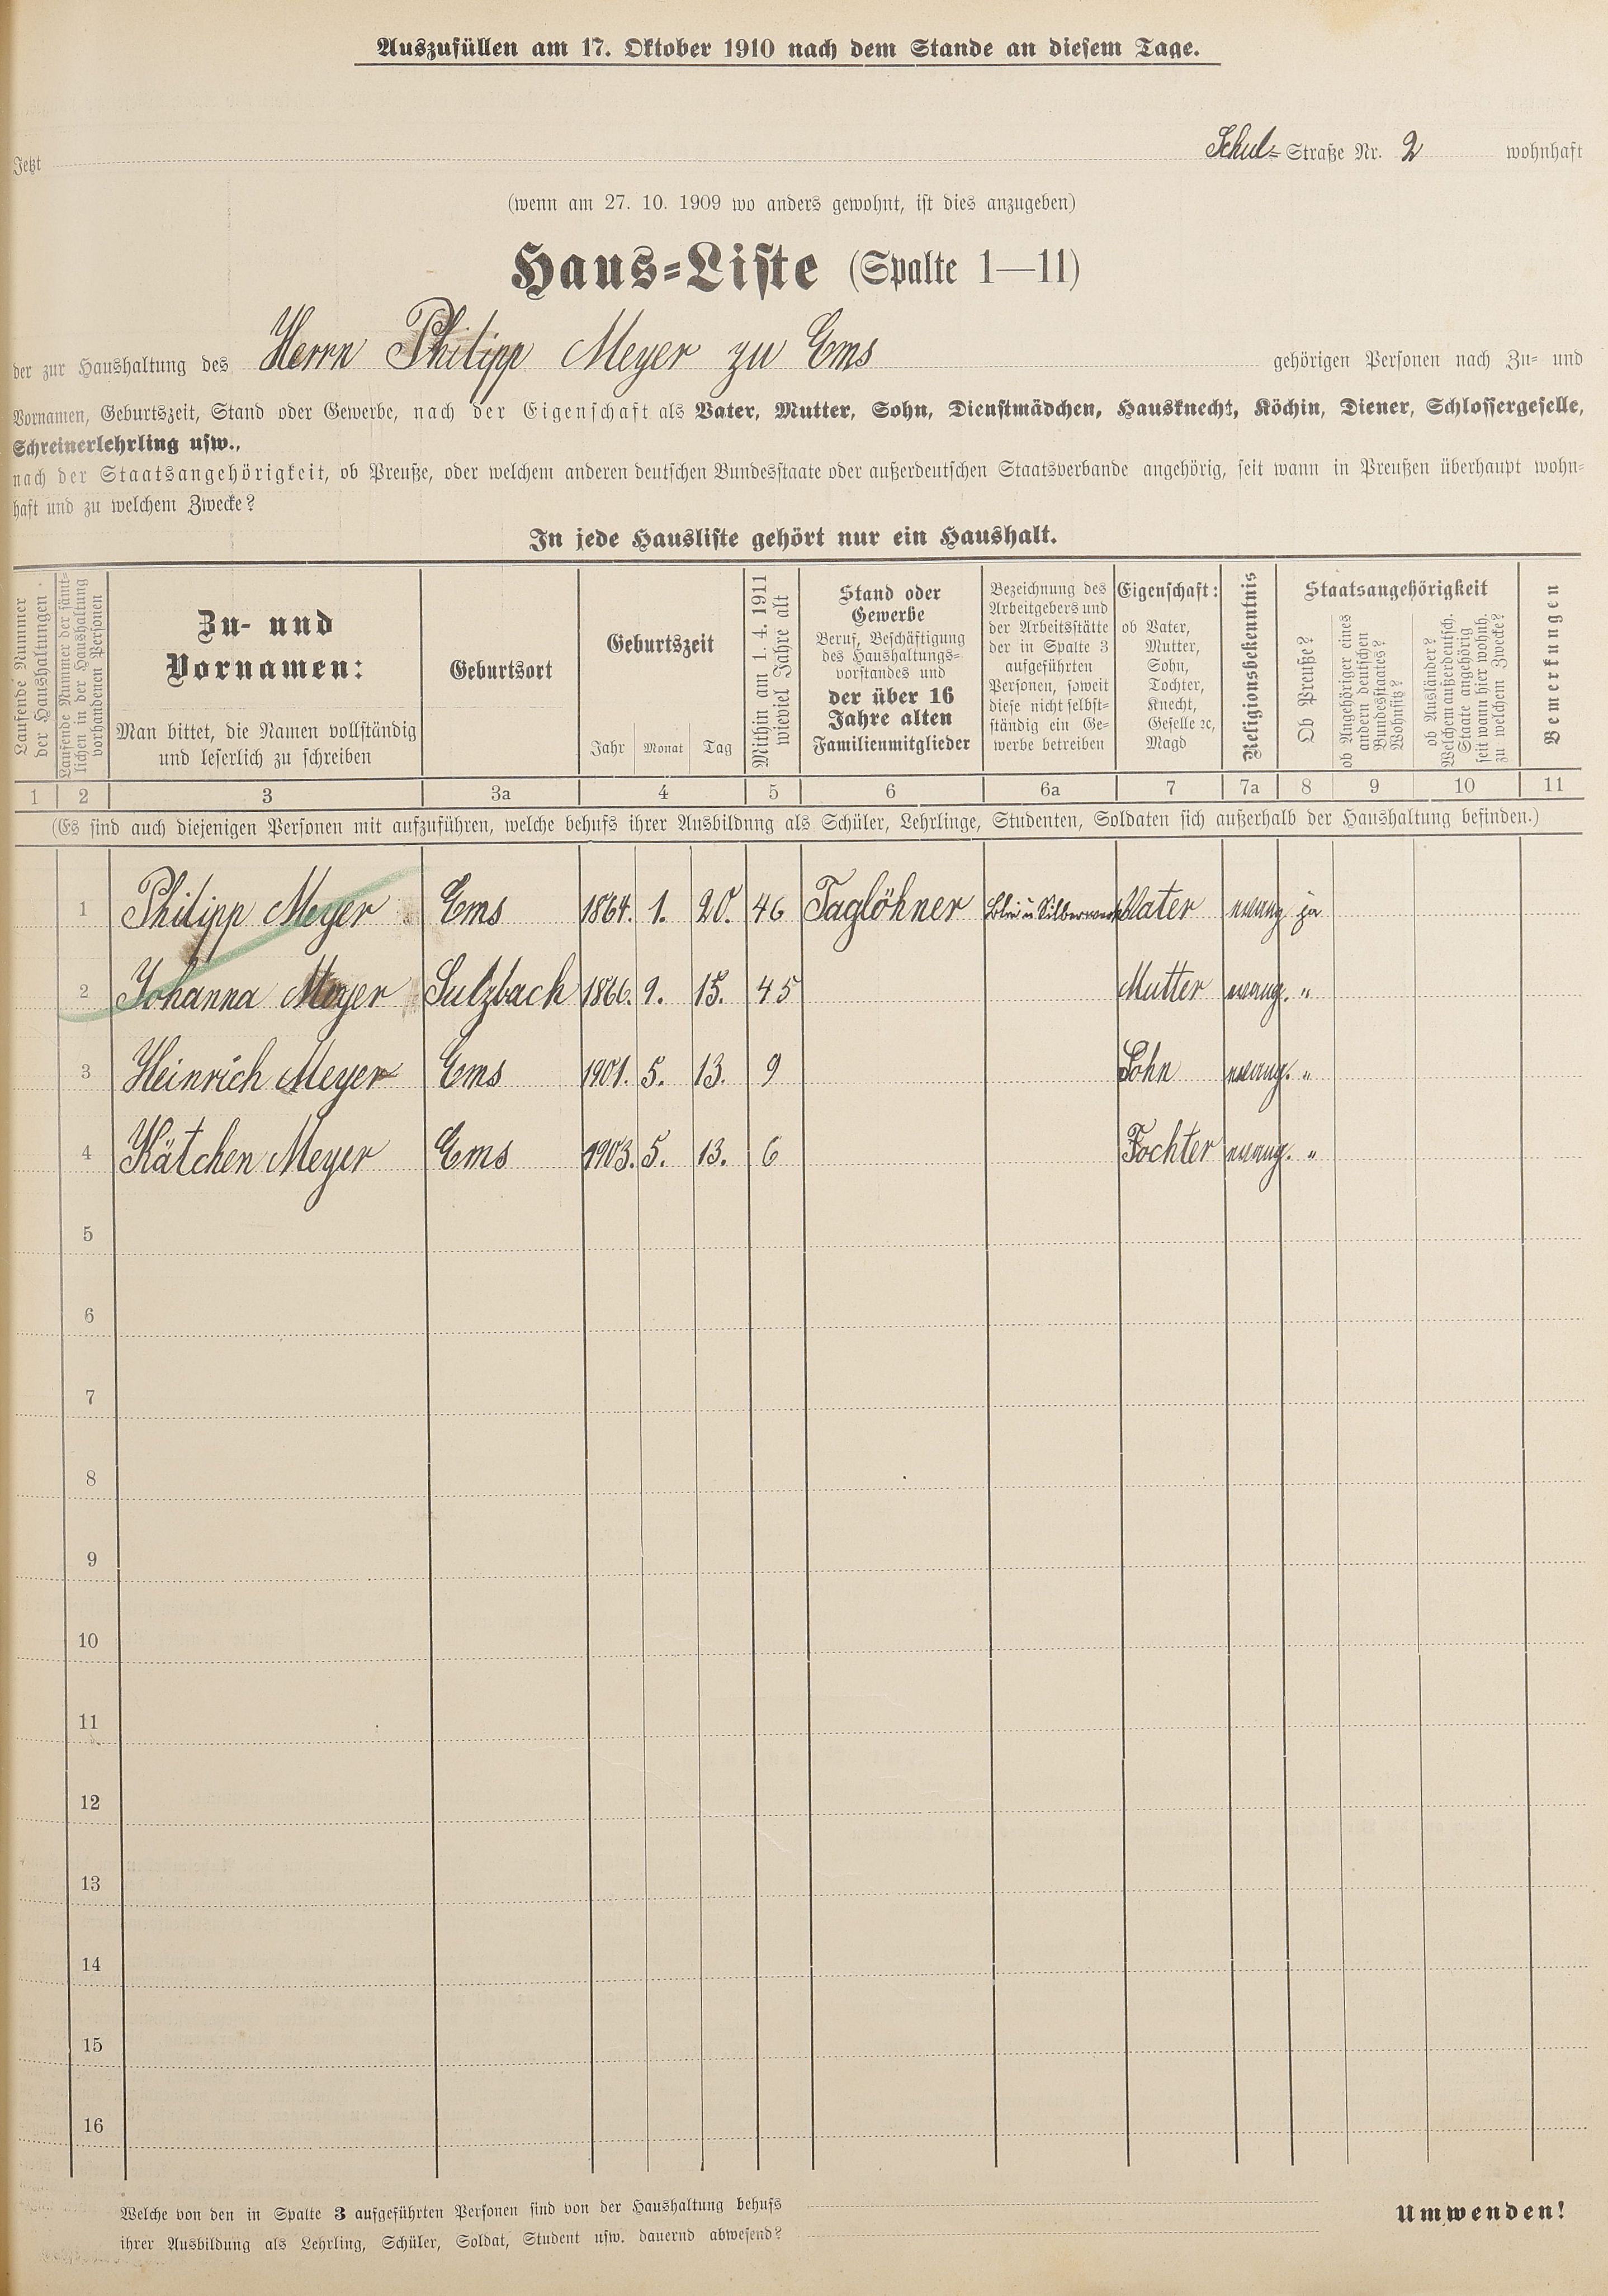 Auszufüllen am 17. Oktober 1910 nach dem Stande an diesem Tage.
Jetzt Schul- Straße Nr. 2 wohnhaft
(wenn am 27. 10. 1909 wo anders gewohnt, ist dies anzugeben)
Haus-Liste (Spalte 1—11)
der zur Haushaltung des Herrn Philipp Meyer zu Ems gehörigen Personen nach Zu- und
Vornamen, Geburtszeit, Stand oder Gewerbe, nach der Eigenschaft als Vater, Mutter, Sohn, Dienstmädchen, Hausknecht, Köchin, Diener, Schlossergeselle,
Schreinerlehrling usw.,
nach der Staatsangehörigkeit, ob Preuße, oder welchem anderen deutschen Bundesstaate oder außerdeutschen Staatsverbande angehörig, seit wann in Preußen überhaupt wohn-
haft und zu welchem Zwecke?
In jede Hausliste gehört nur ein Haushalt.
Laufende Nummer
der Haushaltungen
Laufende Nummer der sämt-
lichen in der Haushaltung
vorhandenen Personen
Zu- und
Vornamen:
Man bittet, die Namen vollständig
und leserlich zu schreiben
Geburtsort
Geburtszeit
Jahr Monat Tag
Mithin am 1. 4. 1911
wieviel Jahre alt
Stand oder
Gewerbe
Beruf, Beschäftigung
des Haushaltungs-
vorstandes und
der über 16
Jahre alten
Familienmitglieder
Bezeichnung des
Arbeitgebers und
der Arbeitsstätte
der in Spalte 3
aufgeführten
Personen, soweit
diese nicht selbst-
ständig ein Ge-
werbe betreiben
Eigenschaft:
ob Vater,
Mutter,
Sohn,
Tochter,
Knecht,
Geselle ꝛc,
Magd
Religionsbekenntnis
Staatsangehörigkeit
Ob Preuße?
ob Angehöriger eines
andern deutschen
Bundesstaates?
Wohnsitz?
ob Ausländer?
Welchem außerdeutsch.
Staate angehörig
seit wann hier wohnh.
zu welchem Zwecke?
Bemerkungen
1 2 3 3a 4 5 6 6a 7 7a 8 9 10 11
(Es sind auch diejenigen Personen mit aufzuführen, welche behufs ihrer Ausbildnng als Schüler, Lehrlinge, Studenten, Soldaten sich außerhalb der Haushaltung befinden.)
1 Philipp Meyer Ems 1864. 1. 20. 46 Taglöhner Blei u Silberwerk Vater evang ja
2 Johanna Meyer Sulzbach 1866. 9. 15. 45 Mutter evang. "
3 Heinrich Meyer Ems 1901. 5. 13. 9 Sohn evang. "
4 Kätchen Meyer Ems 1903. 5. 13. 6 Tochter evang. "
5
6
7
8
9
10
11
12
13
14
15
16
Welche von den in Spalte 3 aufgeführten Personen sind von der Haushaltung behufs
ihrer Ausbildung als Lehrling, Schüler, Soldat, Student usw. dauernd abwesend?
Umwenden!